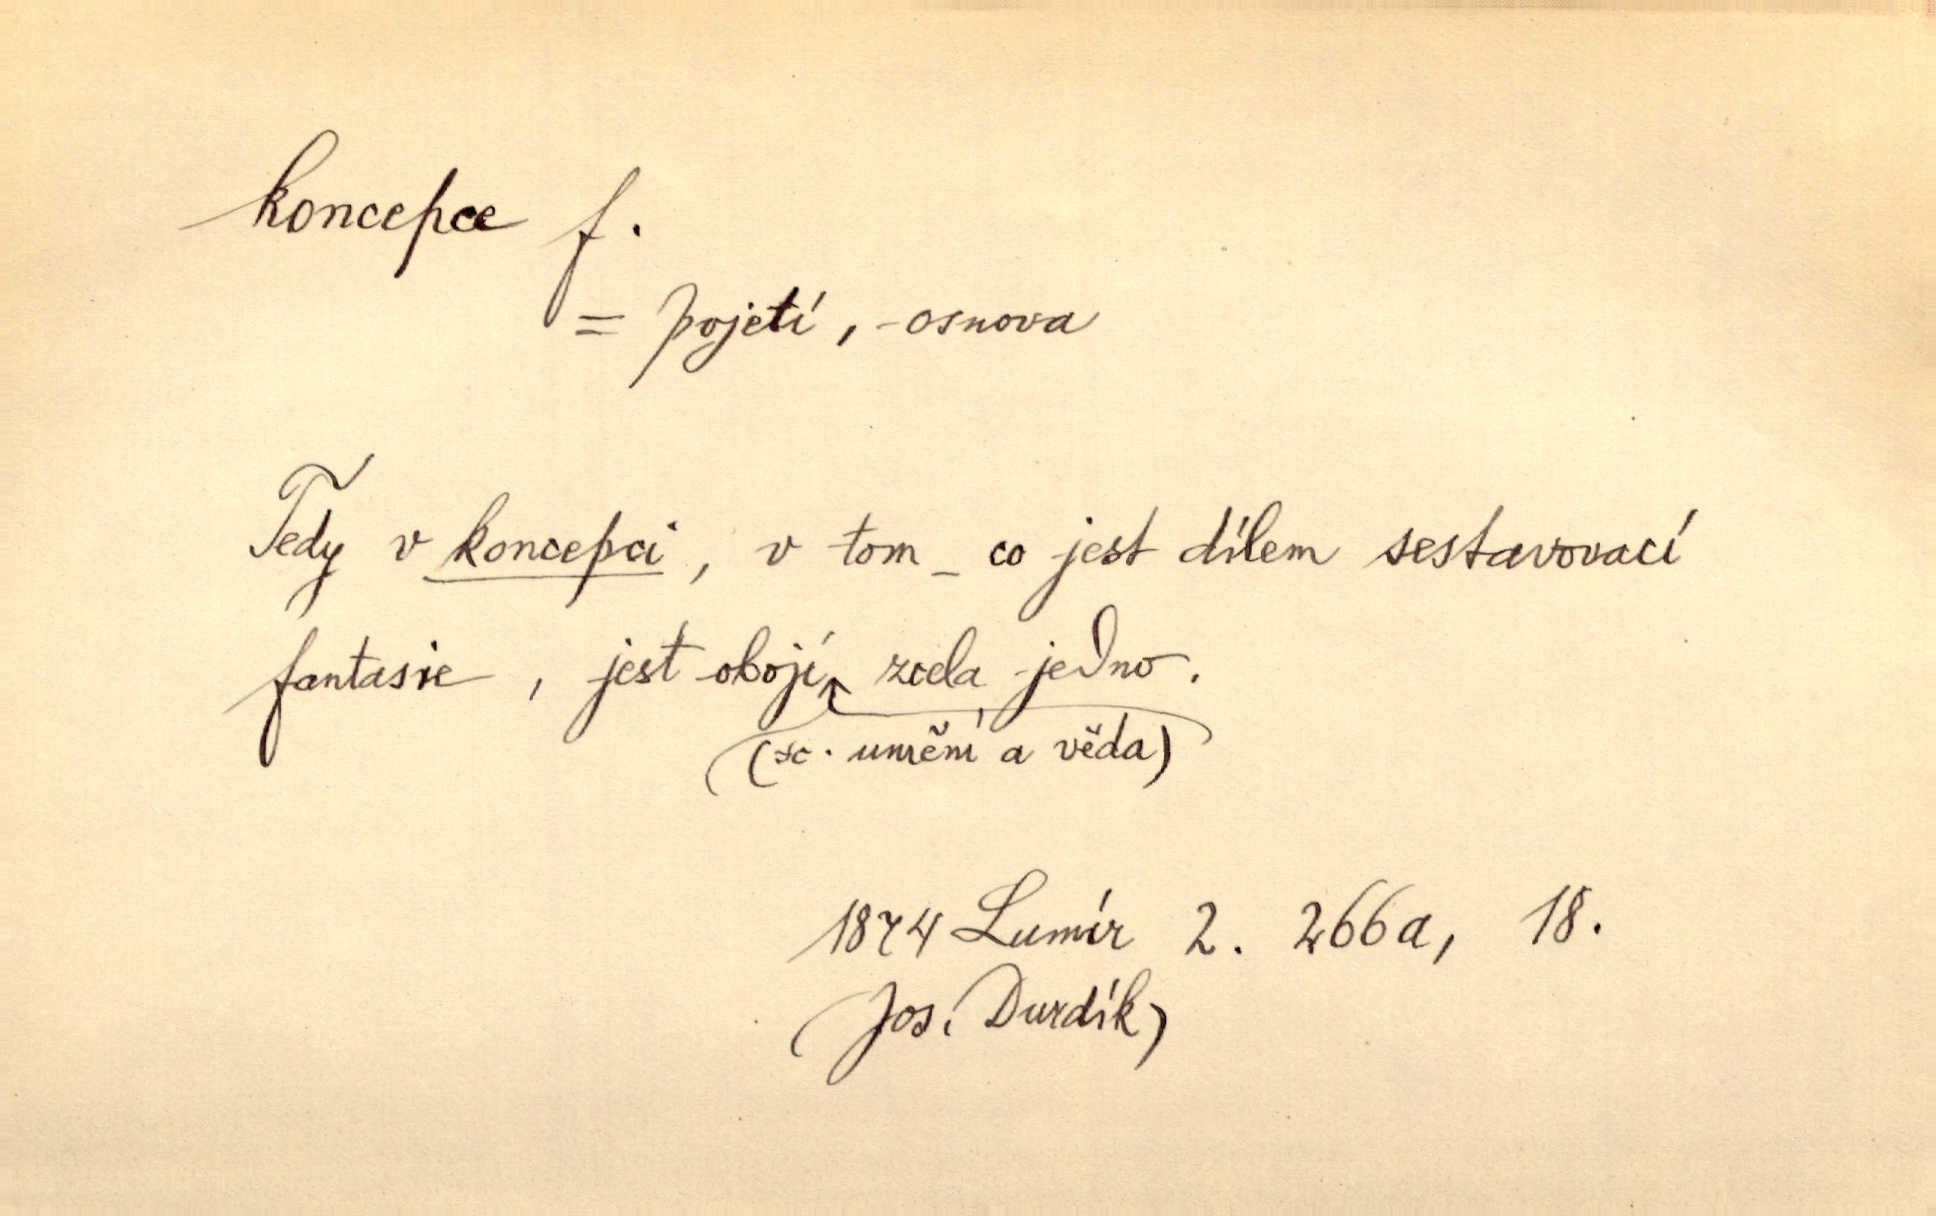 koncepce f.
= pojetí, osnova
Tedy v koncepci, v tom co jest dílem sestavovací
fantasie, jest obojí zcela jedno.
(sc. umění a věda)
1874 Lumír 2. 266a, 18.
(Jos. Durdík)